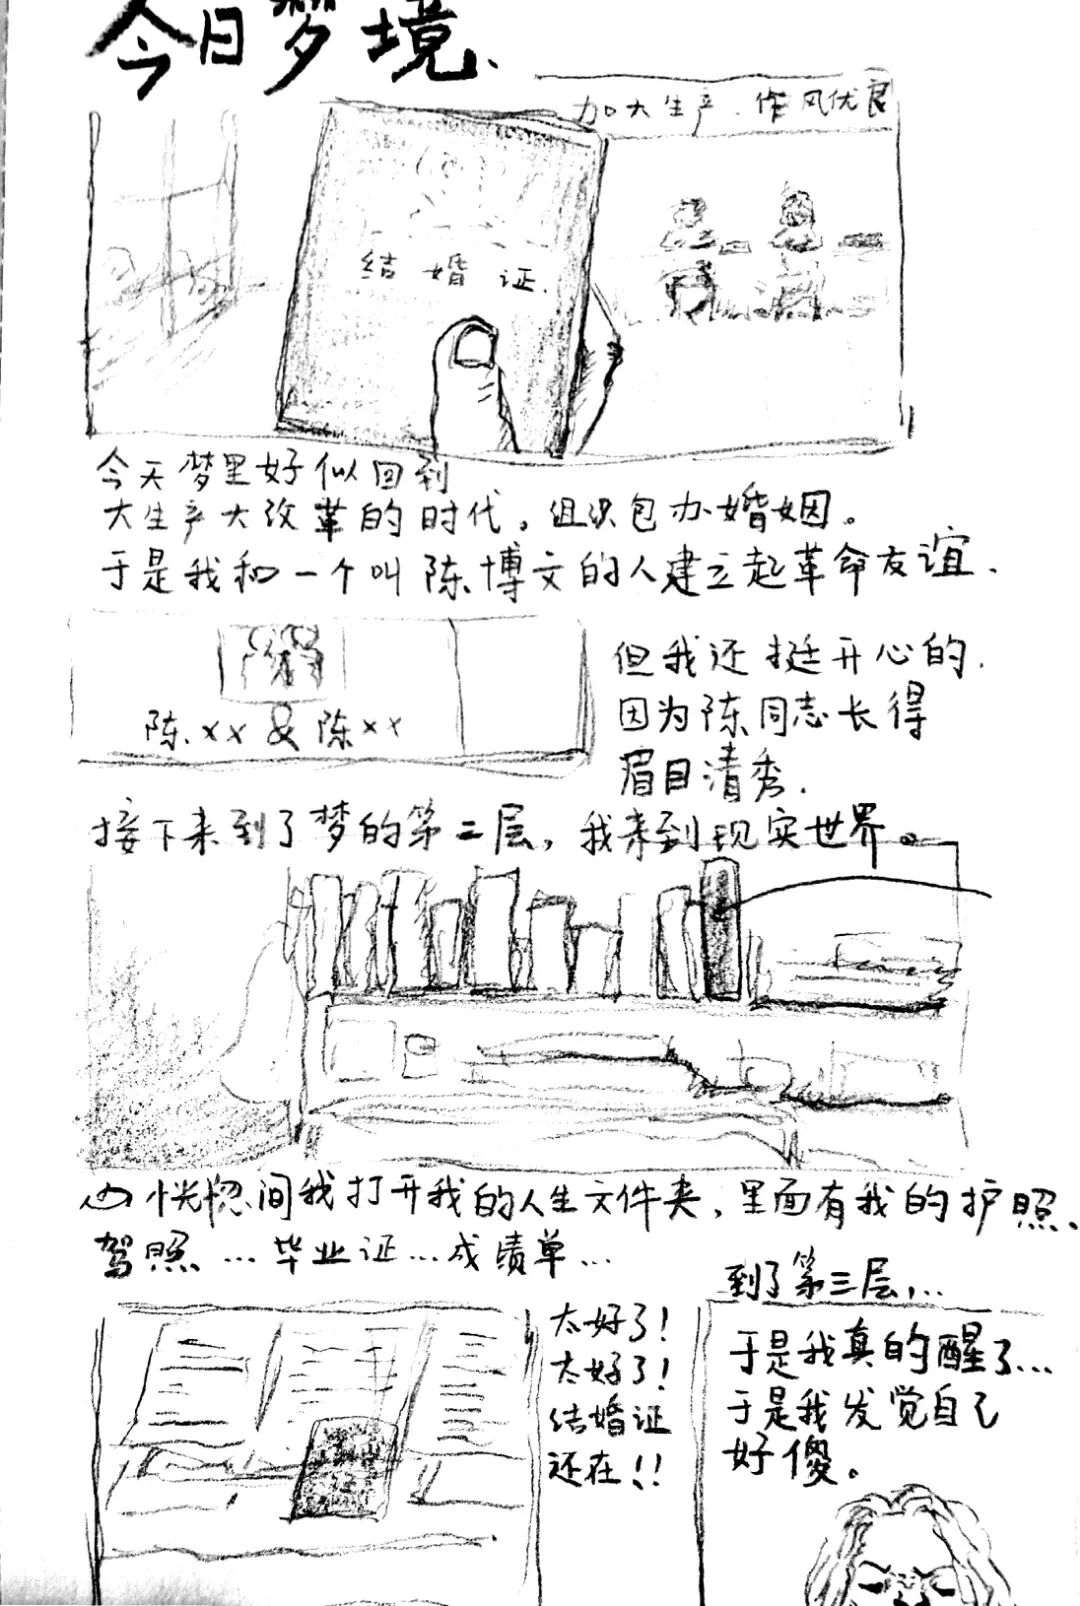 今日梦境.
加大生产.作风优良
结婚证.
今天梦里好似回到
大生产大改革的时代，组织包办婚姻。
于是我和一个叫陈博文的人建立起革命友谊.
但我还挺开心的.
因为陈同志长得
眉目清秀.
陈.xx & 陈xx
接下来到了梦的第二层，我来到现实世界。
恍惚间我打开我的人生文件夹，里面有我的护照、
驾照...毕业证...成绩单...
太好了！
太好了！
结婚证
还在！！
到了第三层，...
于是我真的醒了...
于是我发觉自己
好傻。